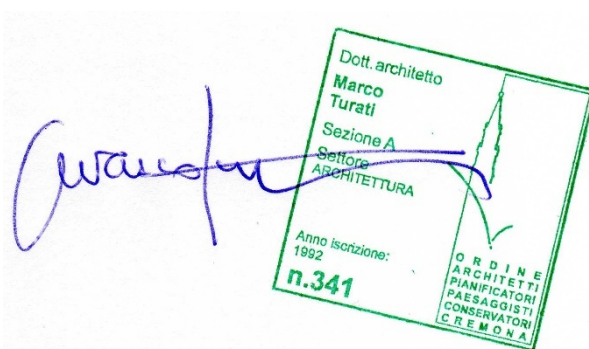 Dott. architetto
Marco
Turati
Sezione A
Settore
ARCHITETTURA
Anno iscrizione:
1992
n.341
ORDINE
ARCHITETTI
PIANIFICATORI
PAESAGGISTI
CONSERVATORI
CREMONA